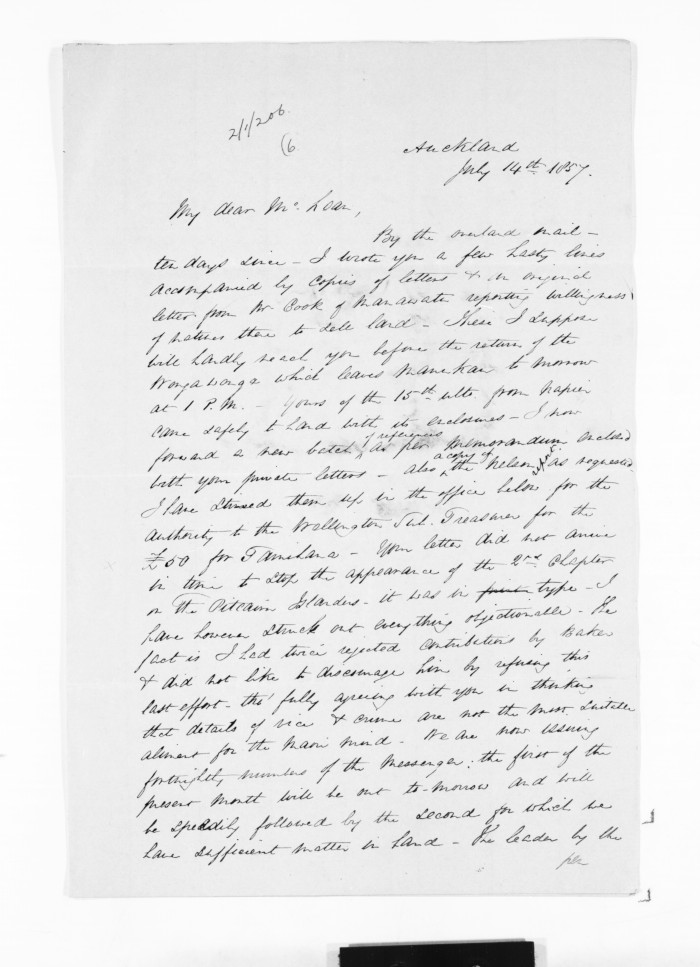 2/1/206.
(6
Auckland
July 14th 1857.
My dear Mc. Lean,
By the overland mail –
ten days since – I wrote you a few hasty lines
accompanied by copies of letters & an original
letter from Mr Cook of Manawatu reporting willingness
of natives there to sell land – These I suppose
will hardly reach you before the return of the
Wonga Wonga which leaves Manukau to morrow
at 1 P.M. – Yours of the 15th ulto. from Napier
came safely to hand with its enclosures – I now
forward a new batch of references as per memorandum enclosed
with your private letters – also a copy of the Nelson as requested
I have stirred them up in the office below for the
authority to the Wellington Sub. Treasurer for the
£50 for Tamihana – Your letter did not arrive
in time to stop the appearance of the 2nd Chapter
on the Pitcairn Islanders – it was in print type – I
have however struck out everything objectionable – The
fact is I had twice rejected contributions by Baker
& did not like to discourage him by refusing this
last effort – tho' fully agreeing with you in thinking
that details of vice & crime are not the most suitable
aliment for the Maori mind. We are now issuing
fortnightly numbers of the Messenger; the first of the
present month will be out to-morrow and will
be speedily followed by the second for which we
have sufficient matter in hand – The leader by the
pen